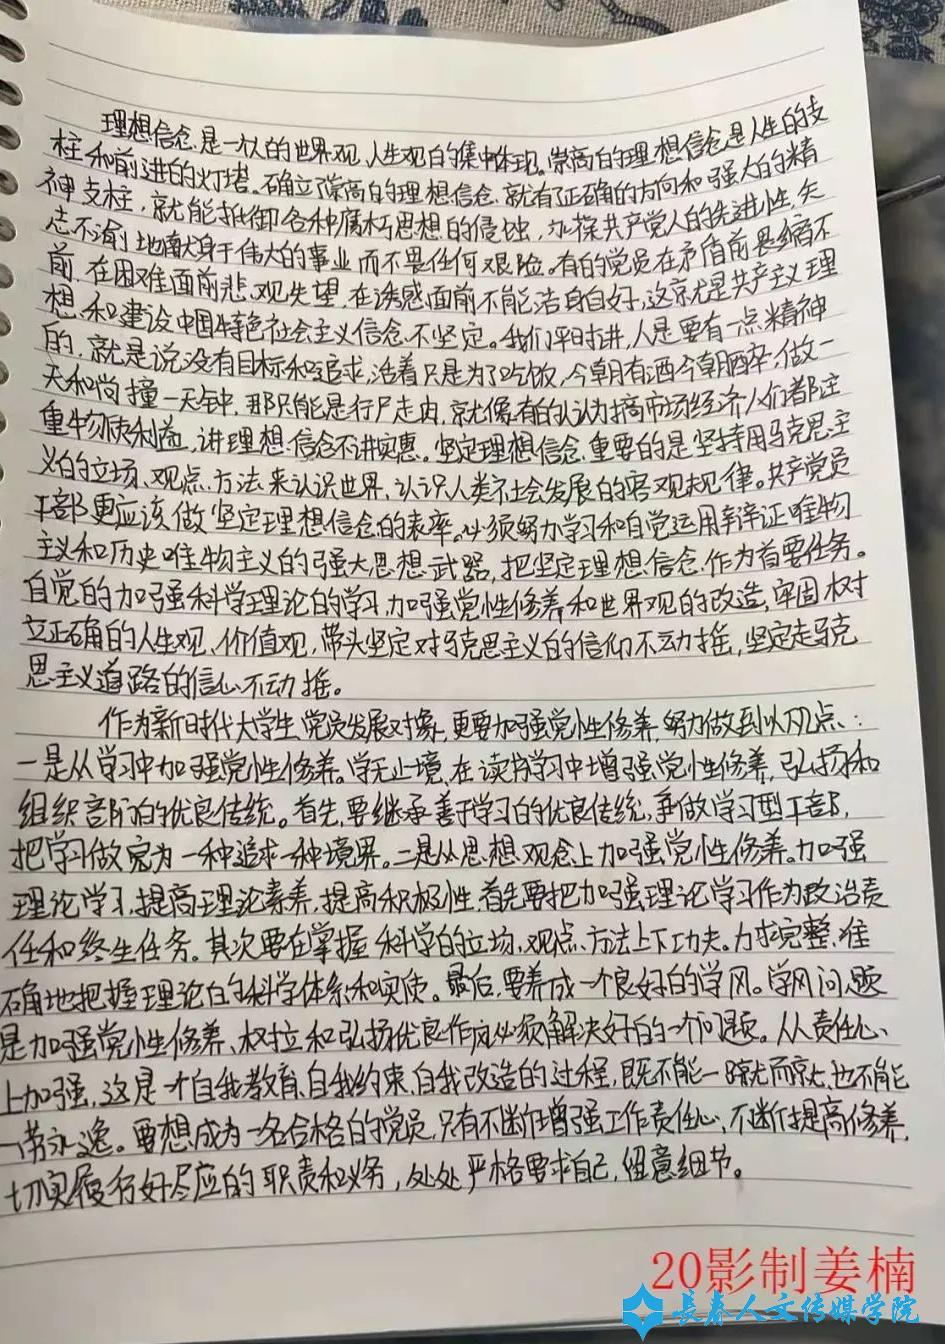 理想信念,是一个人的世界观,人生观的集中体现。崇高的理想信念是人生的支
柱和前进的灯塔。确立了崇高的理想信念,就有了正确的方向和强大的精
神支柱,就能抵御各种腐朽思想的侵蚀,永葆共产党人的先进性,矢
志不渝地献身于伟大的事业而不畏任何艰险。有的党员在矛盾前畏缩不
前,在困难面前悲观失望,在诱惑面前不能洁身自好,这就是共产主义理
想和建设中国特色社会主义信念不坚定。我们平时讲,人是要有一点精神
的,就是说没有目标和追求,活着只是为了吃饭,今朝有酒今朝醉,做一
天和尚撞一天钟,那只能是行尸走肉,就像有的人认为搞市场经济人们都注
重物质利益,讲理想信念不讲实惠。坚定理想信念,重要的是坚持用马克思主
义的立场、观点、方法来认识世界,认识人类社会发展的客观规律。共产党员
干部更应该做坚定理想信念的表率。必须努力学习和自觉运用辩证唯物
主义和历史唯物主义的强大思想武器,把坚定理想信念作为首要任务。
自觉的加强科学理论的学习,加强党性修养和世界观的改造,牢固树
立正确的人生观、价值观,带头坚定对马克思主义的信仰不动摇,坚定走马克
思主义道路的信心不动摇。
作为新时代大学生党员发展对象,更要加强党性修养,努力做到以下几点:
一是从学习中加强党性修养。学无止境,在读书学习中增强党性修养,弘扬和
组织部门的优良传统。首先,要继承善于学习的优良传统,争做学习型干部,
把学习做完为一种追求一种境界。二是从思想观念上加强党性修养。加强
理论学习,提高理论素养,提高积极性,首先要把加强理论学习作为政治责
任和终生任务。其次要在掌握科学的立场,观点、方法上下功夫。力求完整、准
确地把握理论的科学体系和实质。最后,要养成一个良好的学风。学风问题
是加强党性修养、树立和弘扬优良作风必须解决好的一个问题。从责任心
上加强,这是一个自我教育,自我约束,自我改造的过程,既不能一蹴而就,也不能
一劳永逸。要想成为一名合格的党员,只有不断在增强工作责任心,不断提高修养,
切实履行好尽应的职责和义务,处处严格要求自己,留意细节。
20影制姜楠
长春人文传媒学院